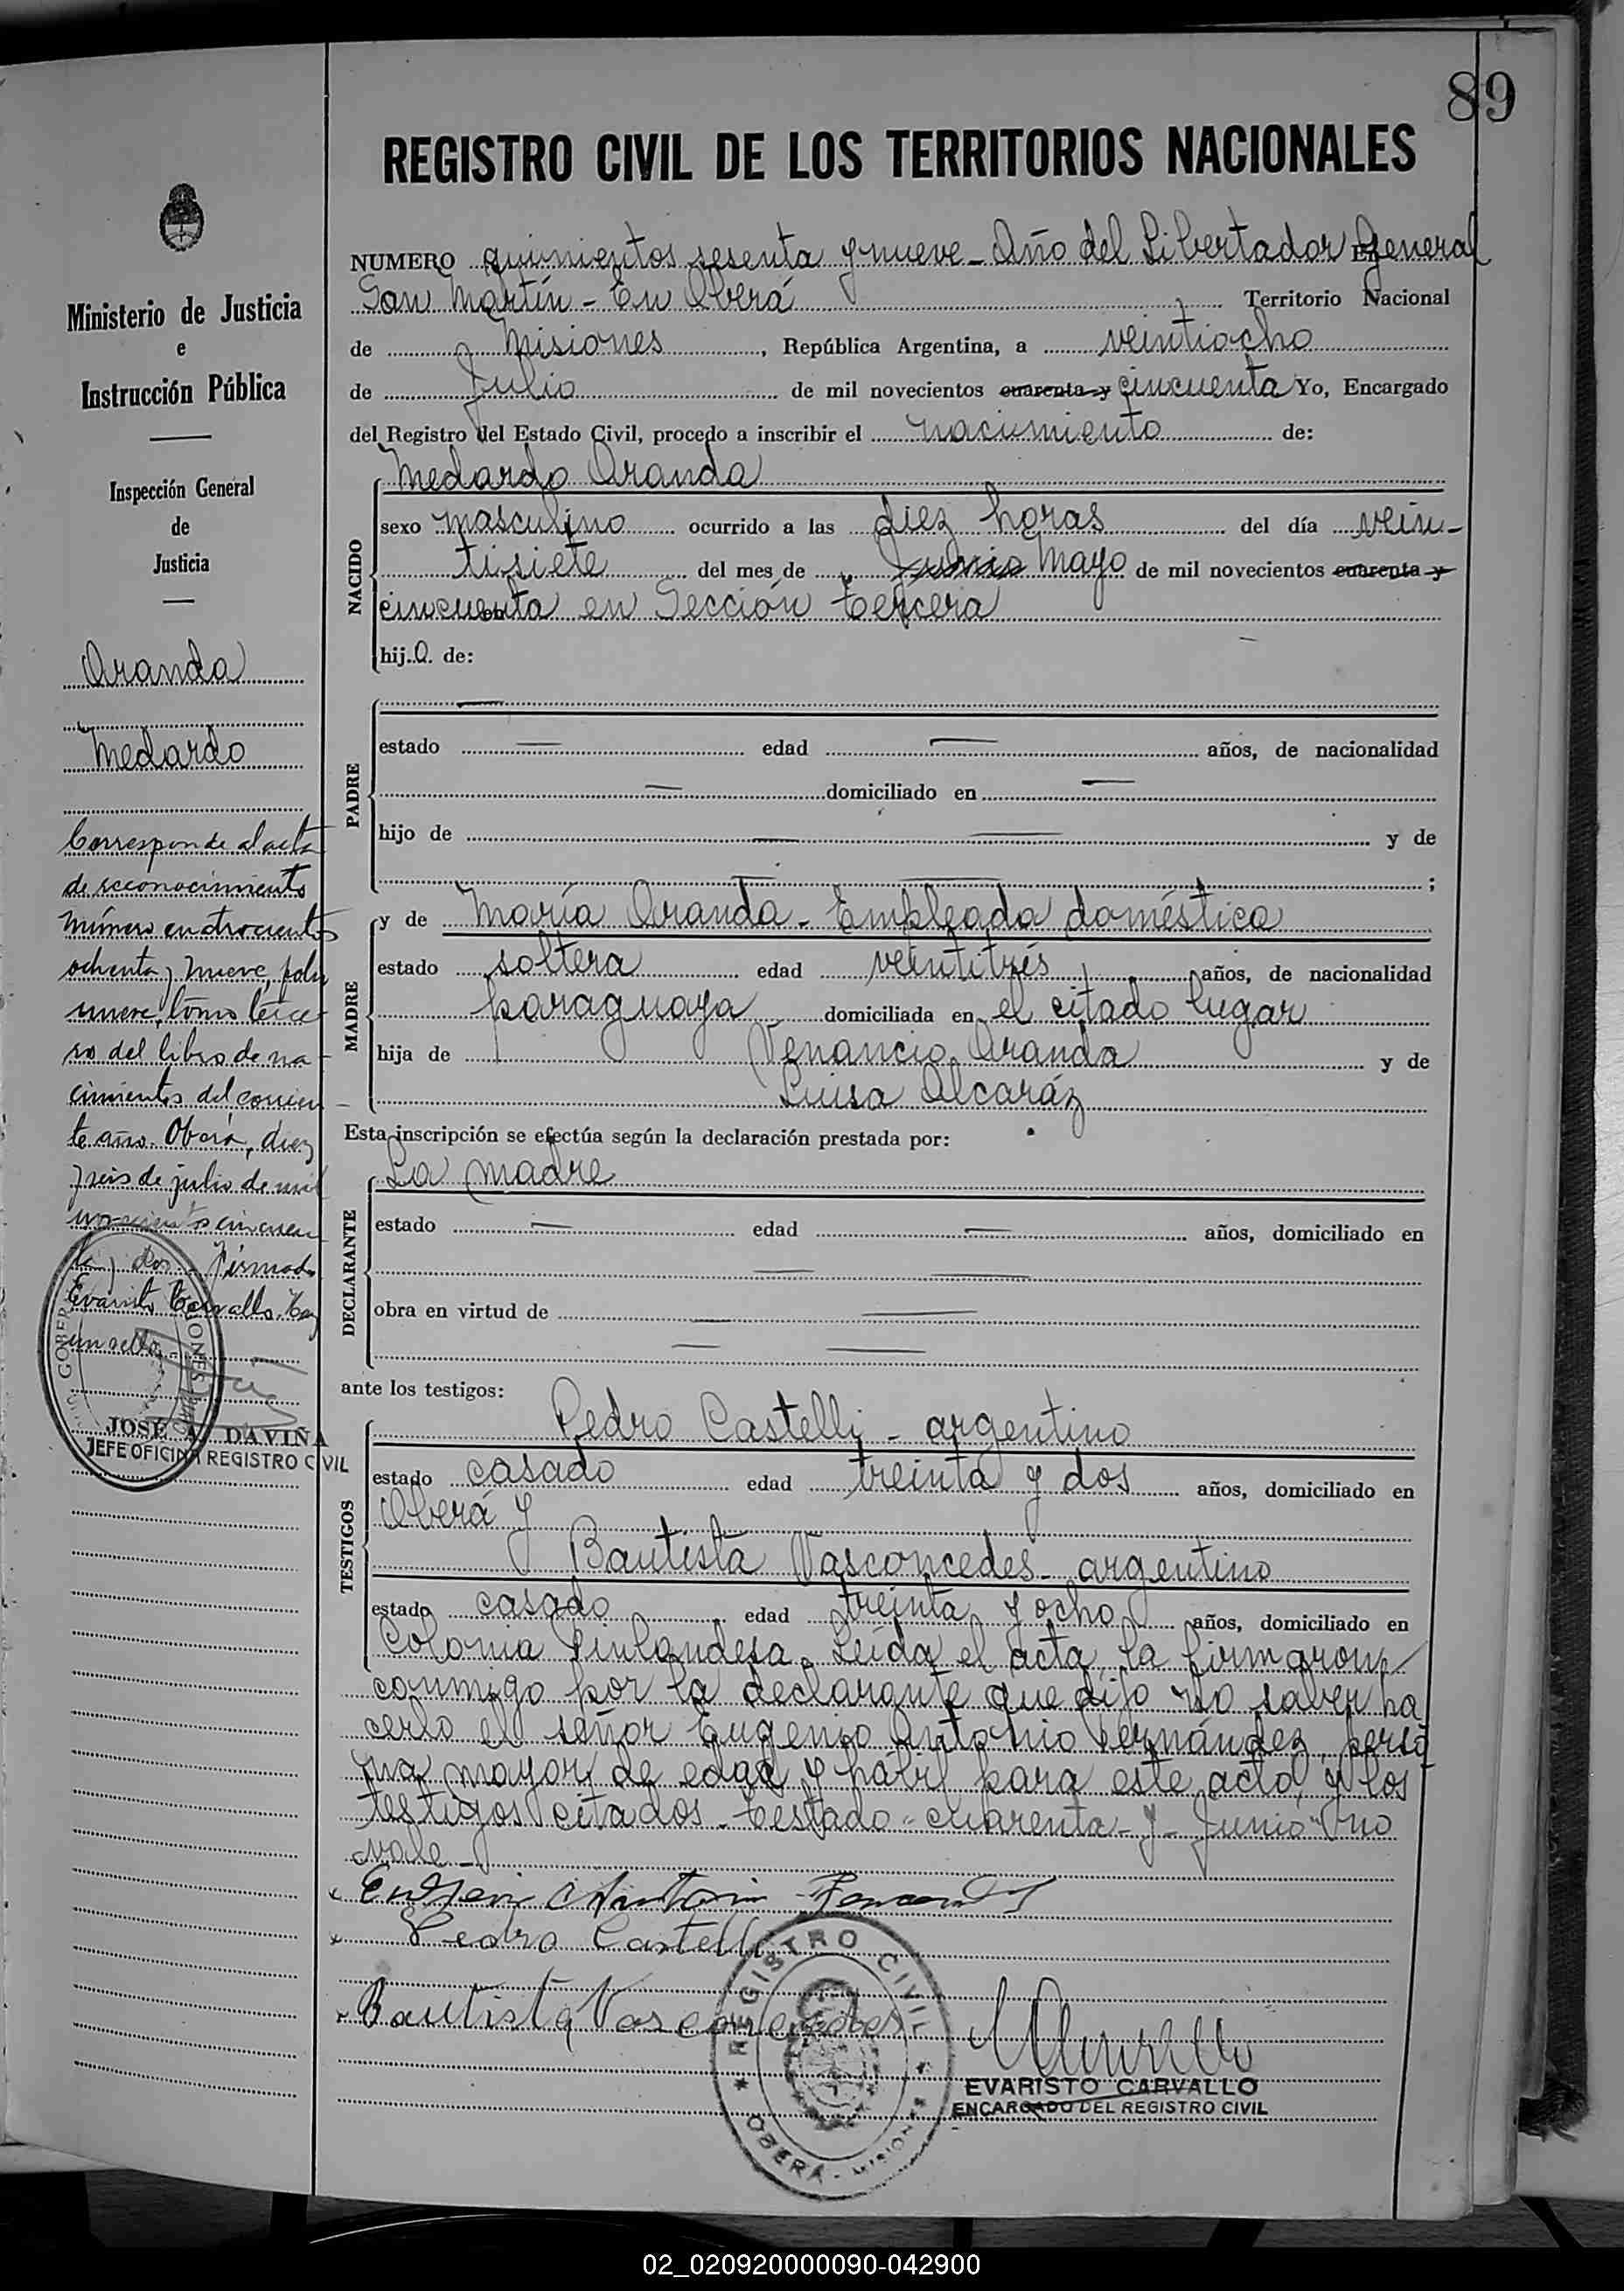 89
REGISTRO CIVIL DE LOS TERRITORIOS NACIONALES
Ministerio de Justicia
e
Instrucción Pública
Inspección General
de
Justicia
Aranda
Medardo
Corresponde al acta
de reconocimiento
número cuatrocientos
ochenta y nueve, folio
nueve, tomo terce-
ro del libro de na-
cimientos del corrien-
te año. Oberá, diez
y seis de julio de mil
novecientos cincuen
ta y dos. Firmado
Evaristo Carvallo. Hay
un sello.
JOSÉ A. DAVIÑA
JEFE OFICINA REGISTRO CIVIL
NUMERO quinientos sesenta y nueve - Año del Libertador En General
San Martín - En Oberá Territorio Nacional
de Misiones, República Argentina, a veintiocho
de Julio de mil novecientos cuarenta y cincuenta Yo, Encargado
del Registro del Estado Civil, procedo a inscribir el nacimiento de:
NACIDO
Medardo Aranda
sexo masculino ocurrido a las diez horas del día vein-
tisiete del mes de Junio Mayo de mil novecientos cuarenta y
cincuenta en Sección tercera
hijo de:
PADRE
estado — edad — años, de nacionalidad
— domiciliado en —
hijo de — y de
— ;
MADRE
y de María Aranda - Empleada doméstica
estado soltera edad veintitrés años, de nacionalidad
paraguaya domiciliada en el citado lugar
hija de Venancio Aranda y de
Luisa Alcaráz
Esta inscripción se efectúa según la declaración prestada por:
DECLARANTE
La madre
estado — edad — años, domiciliado en
— —
obra en virtud de — —
— —
ante los testigos:
TESTIGOS
Pedro Castelli - argentino
estado casado edad treinta y dos años, domiciliado en
Oberá y
Bautista Vasconcedes - argentino
estado casado edad treinta y ocho años, domiciliado en
Colonia Finlandesa. Leída el acta, la firmaron
conmigo por la declarante que dijo no saber ha
cerlo el señor Eugenio Antonio Fernández, perso
na mayor de edad y hábil para este acto, y los
testigos citados - Testado "cuarenta - y - Junio" no
vale -
Eugenio Antonio Fernandez
Pedro Castelli
Bautista Vasconcedes
REGISTRO CIVIL
OBERÁ - MISIONES
EVARISTO CARVALLO
ENCARGADO DEL REGISTRO CIVIL
02_020920000090-042900